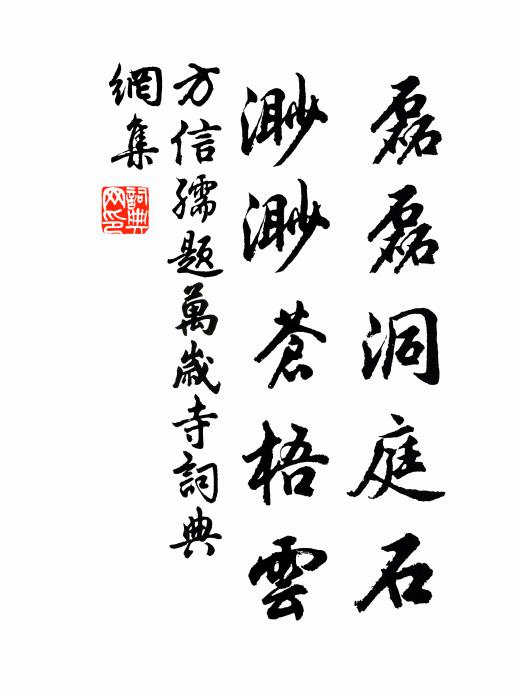 磊磊洞庭石
渺渺蒼梧雲
方信孺題萬歲寺詞典
網集
詞典
网印